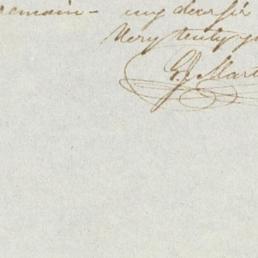 remain - my dear sir
Very truly yo
G. Mart